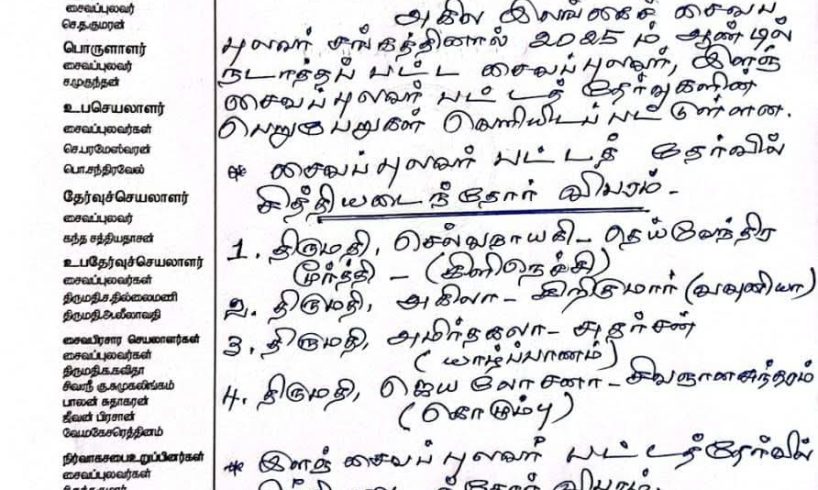 சைவப்புலவர்
செ.த.குமரன்
பொருளாளர்
சைவப்புலவர்
ச.முகுந்தன்
உபசெயலாளர்
சைவப்புலவர்கள்
செ.பரமேஸ்வரன்
பொ.சந்திரவேல்
தேர்வுச்செயலாளர்
சைவப்புலவர்
கந்த சத்தியதாசன்
உபதேர்வுச்செயலாளர்
சைவப்புலவர்கள்
திருமதி.ச.தில்லைமணி
திருமதி.அ.லீலாவதி
சைவபிரசார செயலாளர்கள்
சைவப்புலவர்கள்
திருமதி.க.கவிதா
சிவஸ்ரீ கு.சுமுகலிங்கம்
பாலன் சுதாகரன்
ஜீவன் பிரசான்
வே.மகேசரெத்தினம்
நிர்வாகசபைஉறுப்பினர்கள்
சைவப்புலவர்கள்
அகில இலங்கைச் சைவப்
புலவர் சங்கத்தினால் 2025 ம் ஆண்டில்
நடாத்தப் பட்ட சைவப்புலவர், இளஞ்
சைவப்புலவர் பட்டத் தேர்வுகளின்
பெறுபேறுகள் வெளியிடப் பட்டுள்ளன.
* சைவப்புலவர் பட்டத் தேர்வில்
சித்தியடைந்தோர் விபரம்-
1. திருமதி, செல்வநாயகி- தெய்வேந்திர
மூர்த்தி - (கிளிநொச்சி)
2. திருமதி, அகிலா- சிறிகுமார் (வவுனியா)
3. திருமதி, அமிர்தகலா- சுதர்சன்
(யாழ்ப்பாணம்)
4. திருமதி, ஜெயலோசனா- சிவஞானசுந்தரம்
(கொழும்பு)
* இளஞ் சைவப்புலவர் பட்டத்தேர்வில்
சித்தியடைந்தோர் விபரம்.